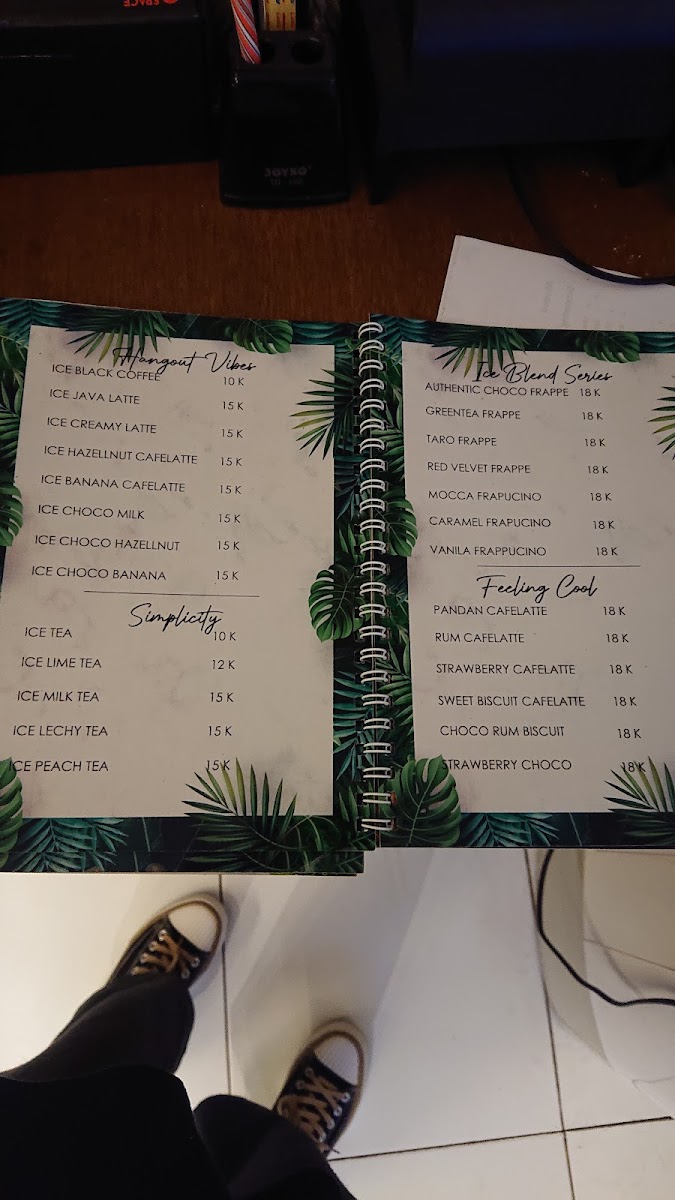 SPACE
JOYKO
Hangout Vibes
ICE BLACK COFFEE 10 K
ICE JAVA LATTE 15 K
ICE CREAMY LATTE 15 K
ICE HAZELLNUT CAFELATTE 15 K
ICE BANANA CAFELATTE 15 K
ICE CHOCO MILK 15 K
ICE CHOCO HAZELLNUT 15 K
ICE CHOCO BANANA 15 K
Simplicity
ICE TEA 10 K
ICE LIME TEA 12 K
ICE MILK TEA 15 K
ICE LECHY TEA 15 K
ICE PEACH TEA 15 K
Ice Blend Series
AUTHENTIC CHOCO FRAPPE 18 K
GREENTEA FRAPPE 18 K
TARO FRAPPE 18 K
RED VELVET FRAPPE 18 K
MOCCA FRAPUCINO 18 K
CARAMEL FRAPUCINO 18 K
VANILA FRAPPUCINO 18 K
Feeling Cool
PANDAN CAFELATTE 18 K
RUM CAFELATTE 18 K
STRAWBERRY CAFELATTE 18 K
SWEET BISCUIT CAFELATTE 18 K
CHOCO RUM BISCUIT 18 K
STRAWBERRY CHOCO 18 K